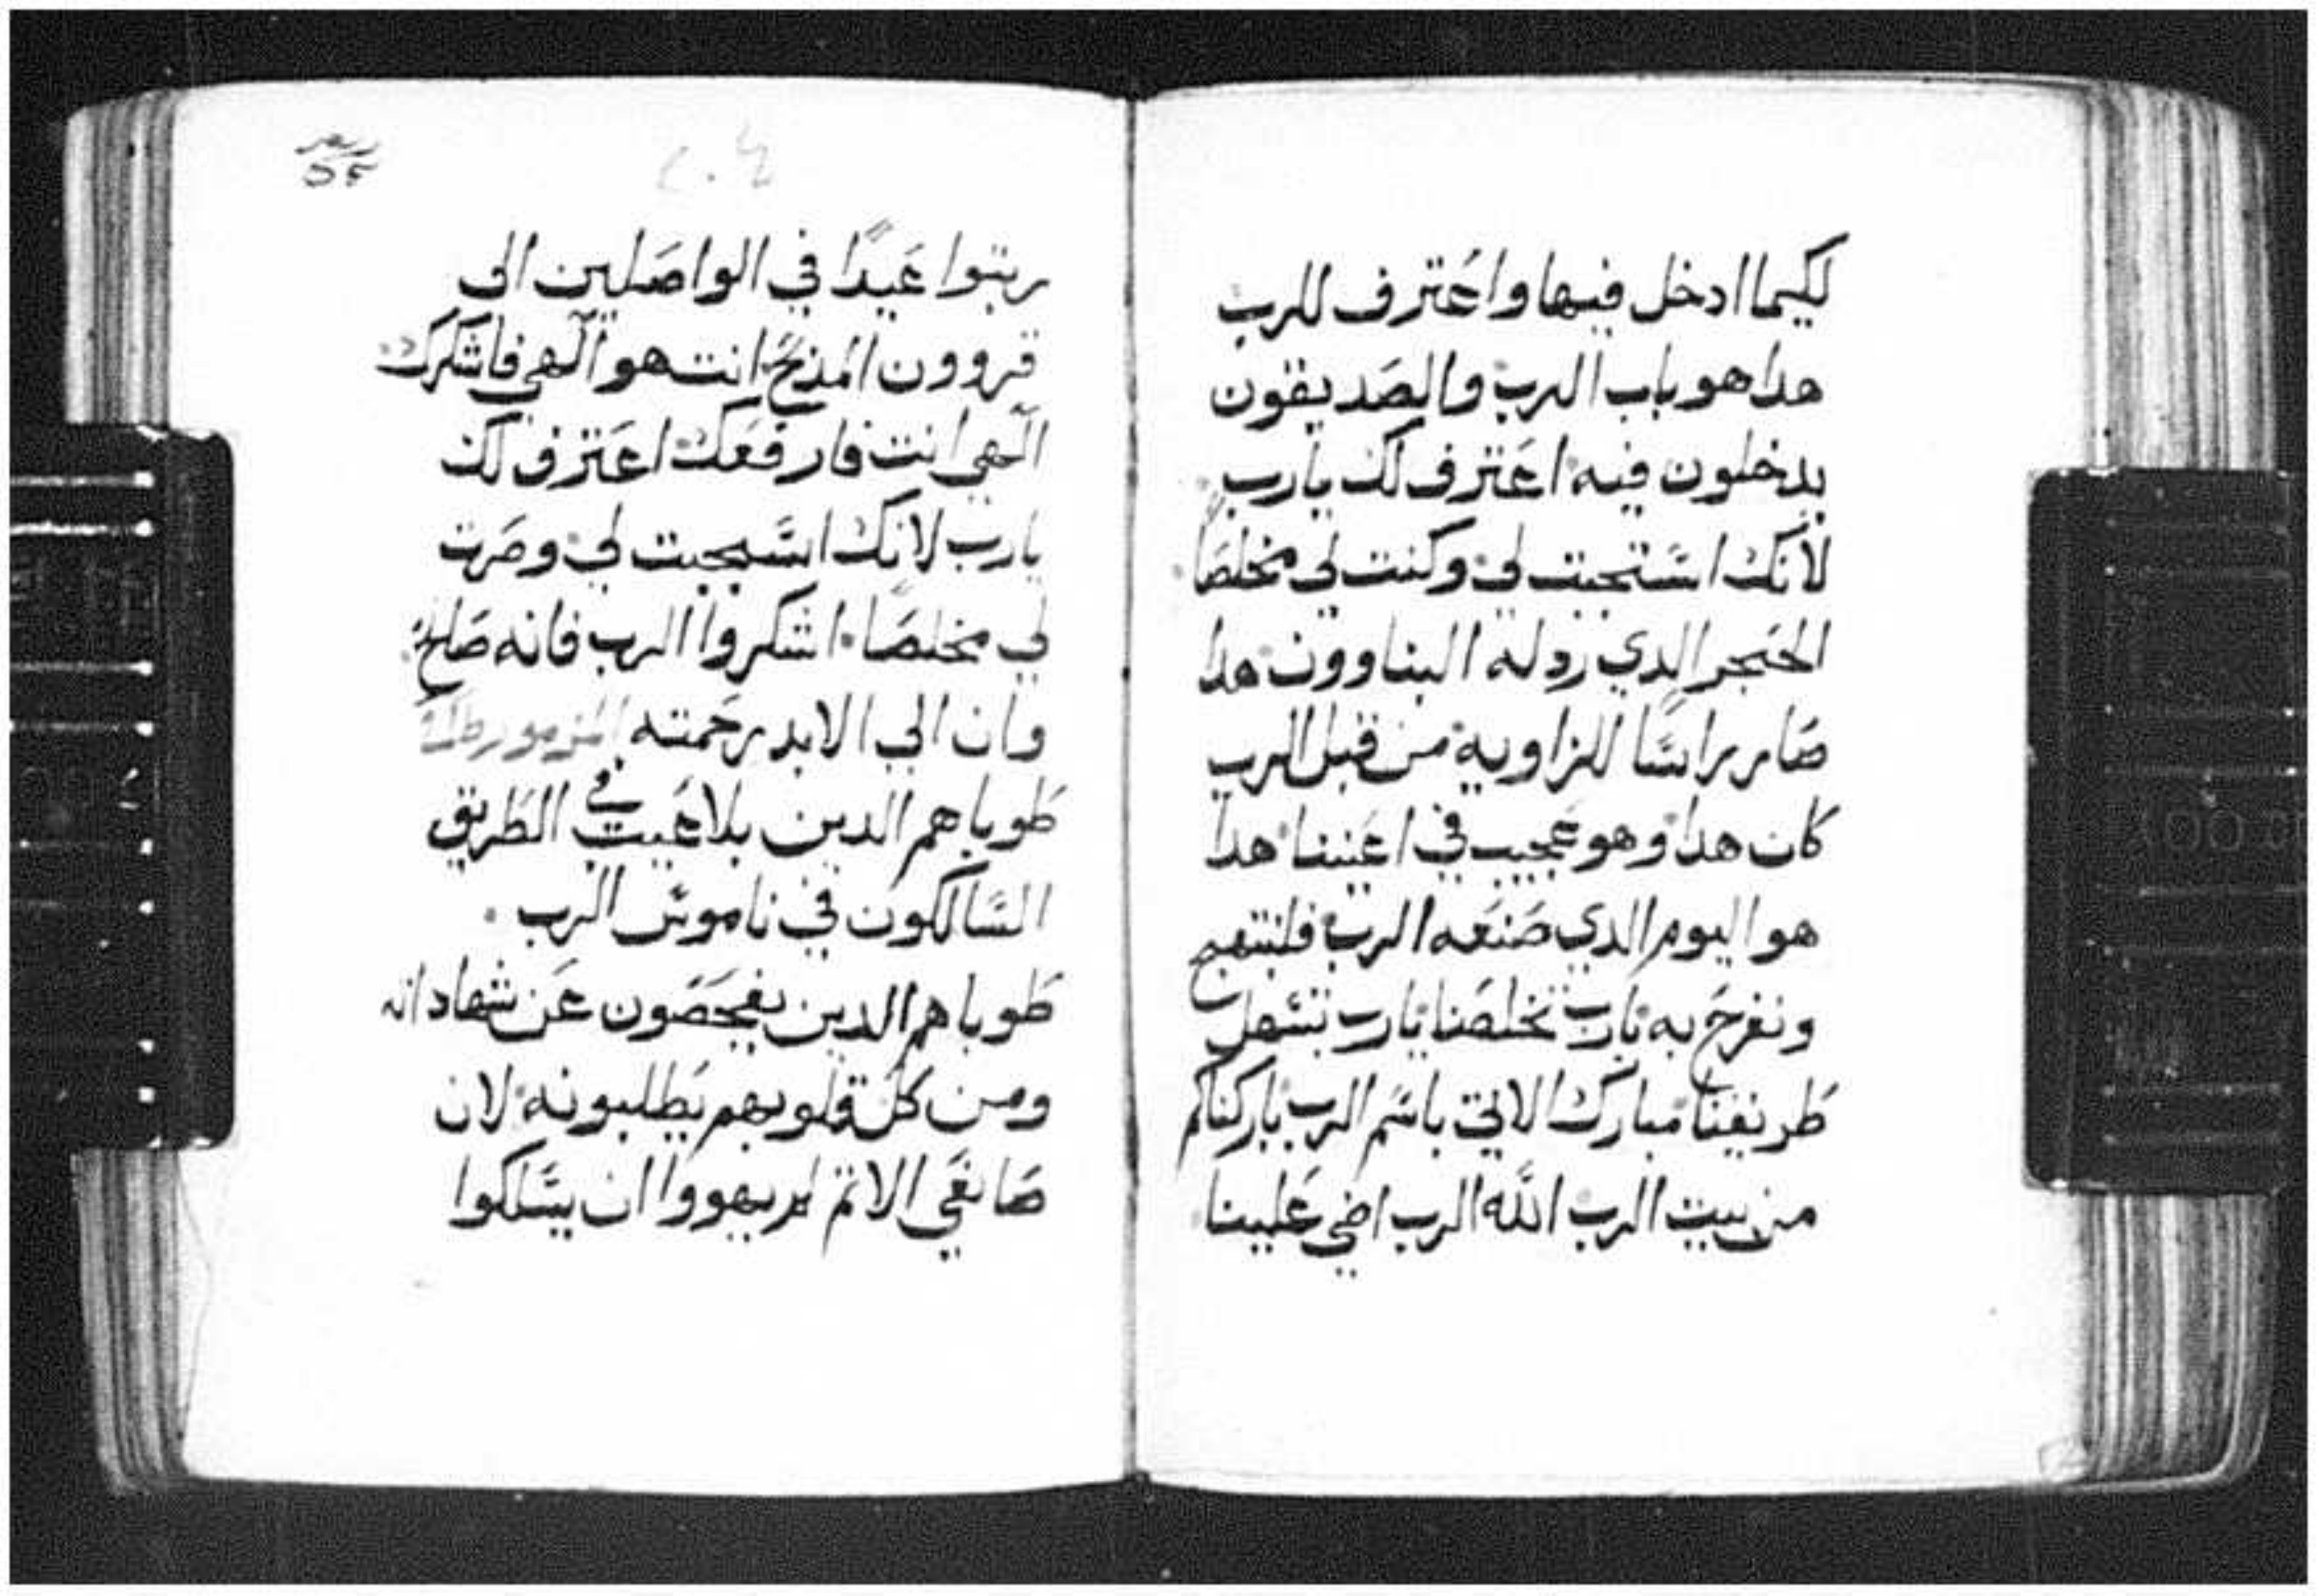 لكيما ادخل فيها واعترف للرب
هدا هو باب الرب والصديقون
يدخلون فيه اعترف لك يارب
لانك استجبت لي وكنت لي مخلصًا
الحجر الدي ردله البناوون هدا
صار راسًا للزاوية من قبل الرب
كان هدا وهو عجيب في اعيننا هدا
هو اليوم الدي صنعه الرب فلنبتهج
ونفرح به يارب تخلصنا يارب تسهل
طريقنا مبارك الاتي باسم الرب باركناكم
من بيت الرب الله الرب اضي علينا
رتبوا عيدًا في الواصلين الى
قروون المذبح انت هو آلهي فاشكرك
آلهي انت فارفعك اعترف لك
يارب لانك استجبت لي وصرت
لي مخلصًا اشكروا الرب فانه صالح
وان الي الابد رحمته المزمور
طوباهم الدين بلا عيب في الطريق
السالكون في ناموس الرب
طوباهم الدين يفحصون عن شهاداته
ومن كل قلوبهم يطلبونه لان
صانعي الاتم لم يهووا ان يسلكوا